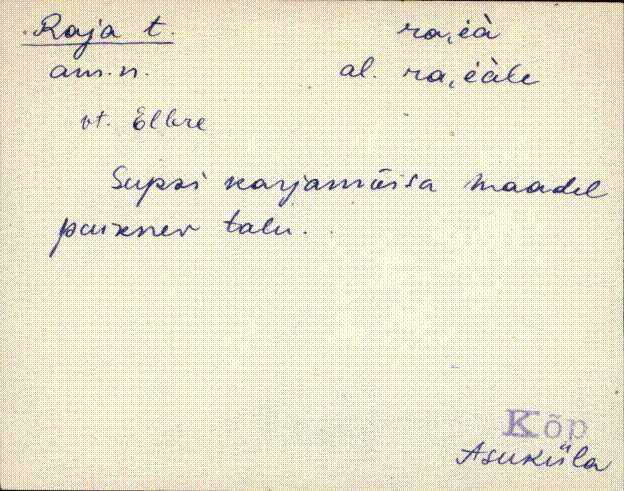 Raja t. ra,éà
am.n. al. ra,éàle
vt. Elbre
Supsi karjamõisa maadel
paiknev talu.
Kõp
Asuküla